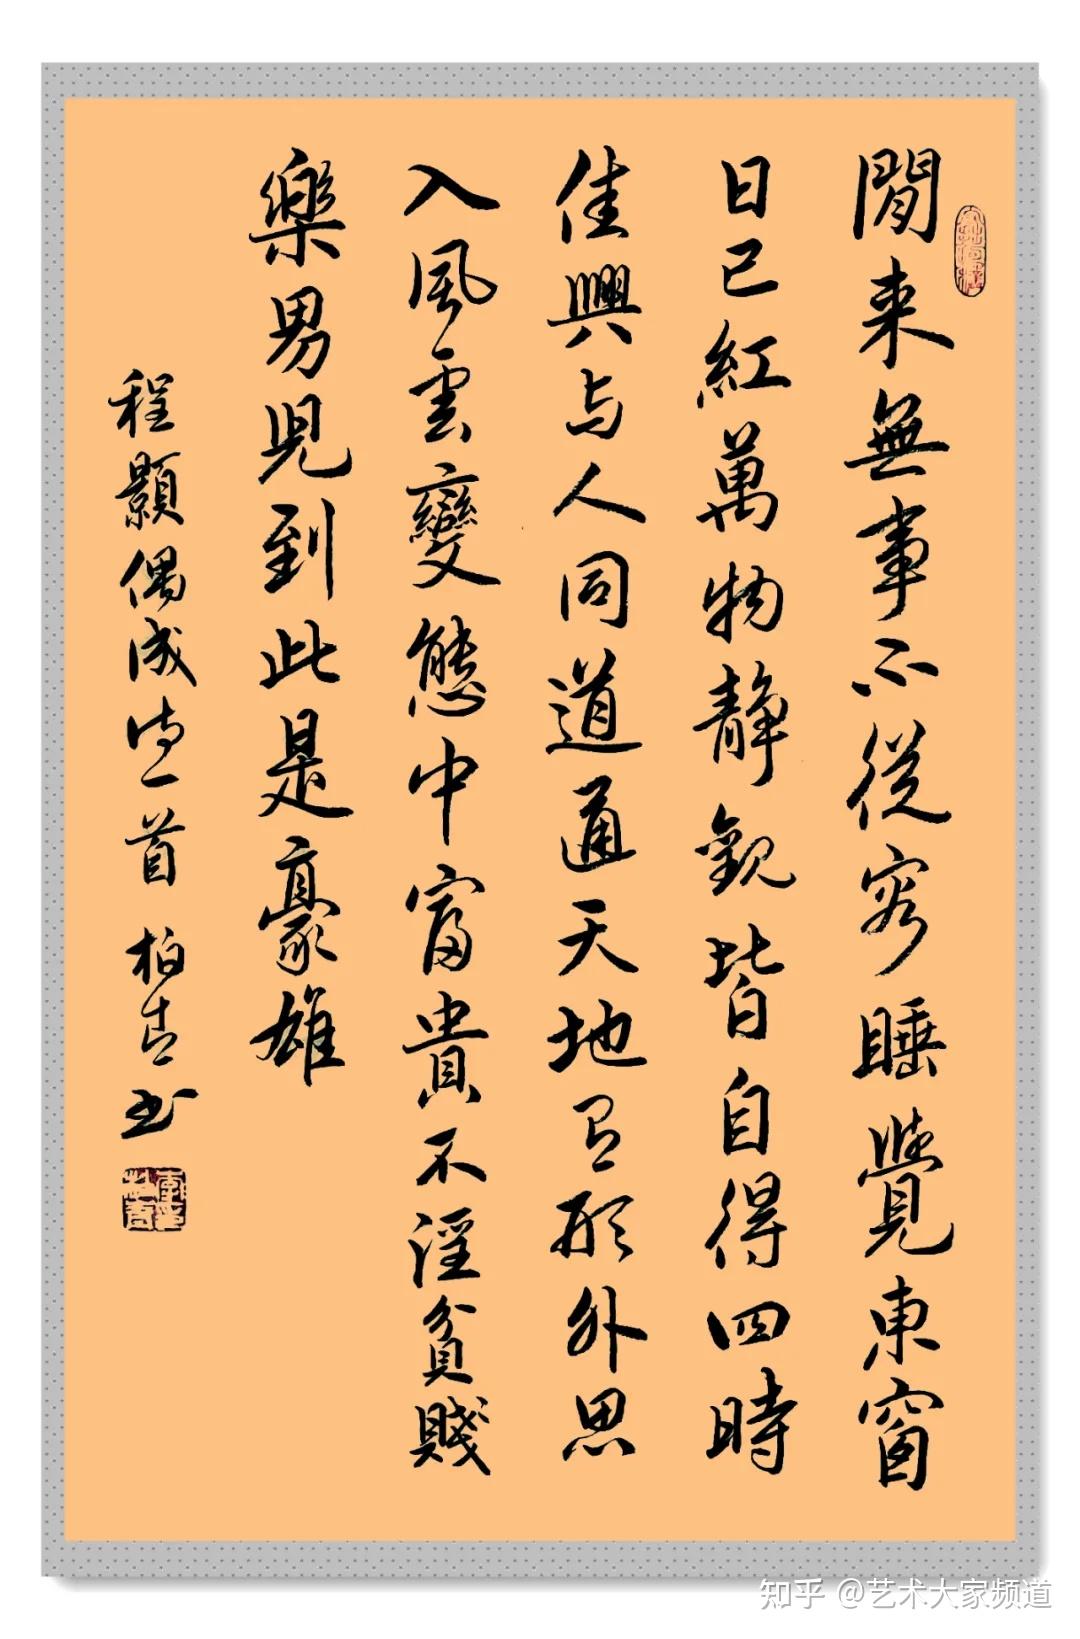 閒来無事不從容睡覺東窗
日已紅萬物靜觀皆自得四時
佳興与人同道通天地有形外思
入風雲變態中富貴不淫貧賤
樂男兒到此是豪雄
程顥偶成诗一首 柏书
知乎 @艺术大家频道